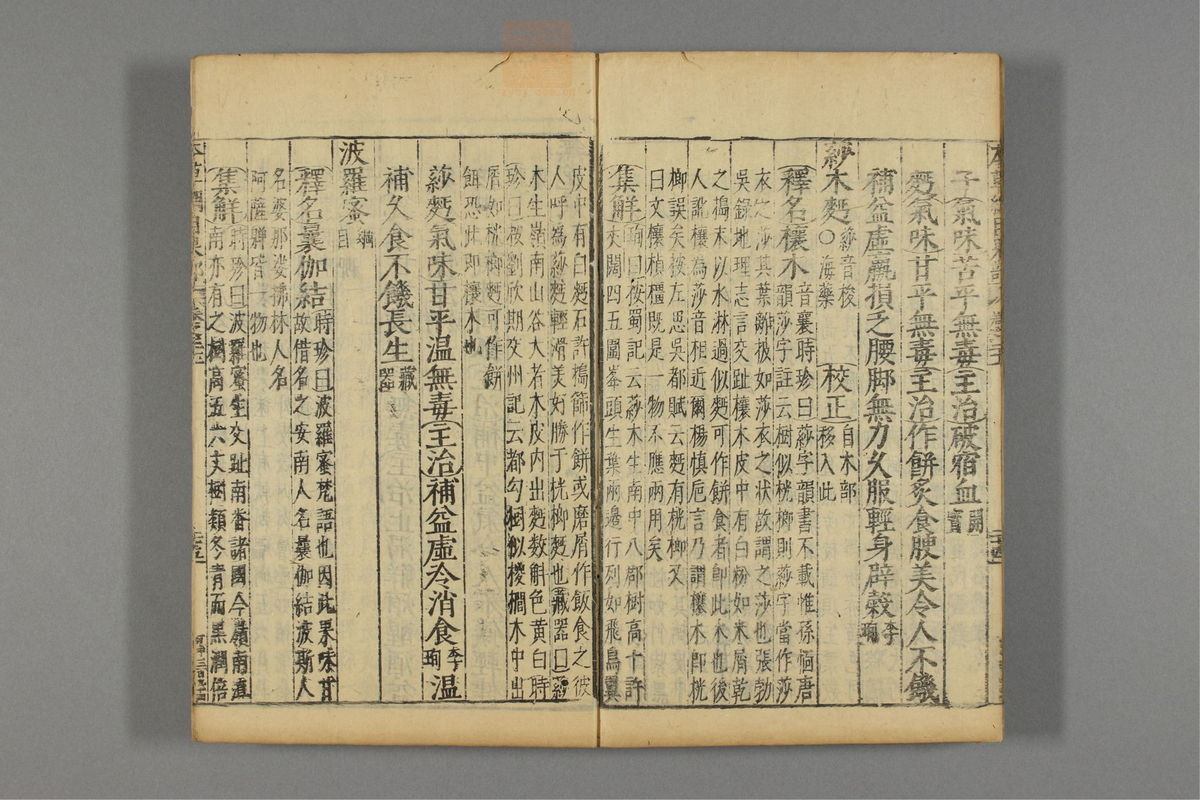 子氣味苦平無毒主治破宿血開寶
麪氣味甘平無毒主治作餅炙食腴美令人不饑
補益虛羸損乏腰脚無力久服輕身辟穀李珣
莎木麪莎音梭○海藥 校正自木部移入此
釋名欀木音襄時珍曰莎字韻書不載惟孫愐唐
韻莎字註云樹似桄榔則莎字當作莎
衣之莎其葉離披如莎衣之狀故謂之莎也張勃
吳錄地理志言交趾欀木皮中有白粉如米屑乾
之搗末以水淋過似麪可作餅食者即此木也後
人訛欀為莎音相近爾楊慎巵言乃謂欀木即桄
榔誤矣按左思吳都賦云麪有桄榔又
曰文欀楨橿既是一物不應兩用矣
集解珣曰按蜀記云莎木生南中八郡樹高十許
丈闊四五圍峯頭生葉兩邊行列如飛鳥翼
皮中有白麪石許搗篩作餅或磨屑作飯食之彼
人呼為莎麪輕滑美好勝于桄榔麪也藏器曰莎
木生嶺南山谷大者木皮內出麪數斛色黃白時
珍曰按劉欣期交州記云都勾樹似椶櫚木中出
屑如桄榔麪可作餅
餌恐此即欀木也
莎麪氣味甘平溫無毒主治補益虛冷消食李珣溫
補久食不饑長生藏器
波羅蜜綱目
釋名曩伽結時珍曰波羅蜜梵語也因此果味甘
故借名之安南人名曩伽結波斯人
名婆那娑拂林人名
阿薩嚲皆一物也
集解時珍曰波羅蜜生交趾南番諸國今嶺南滇
南亦有之樹高五六丈樹類冬青而黑潤倍